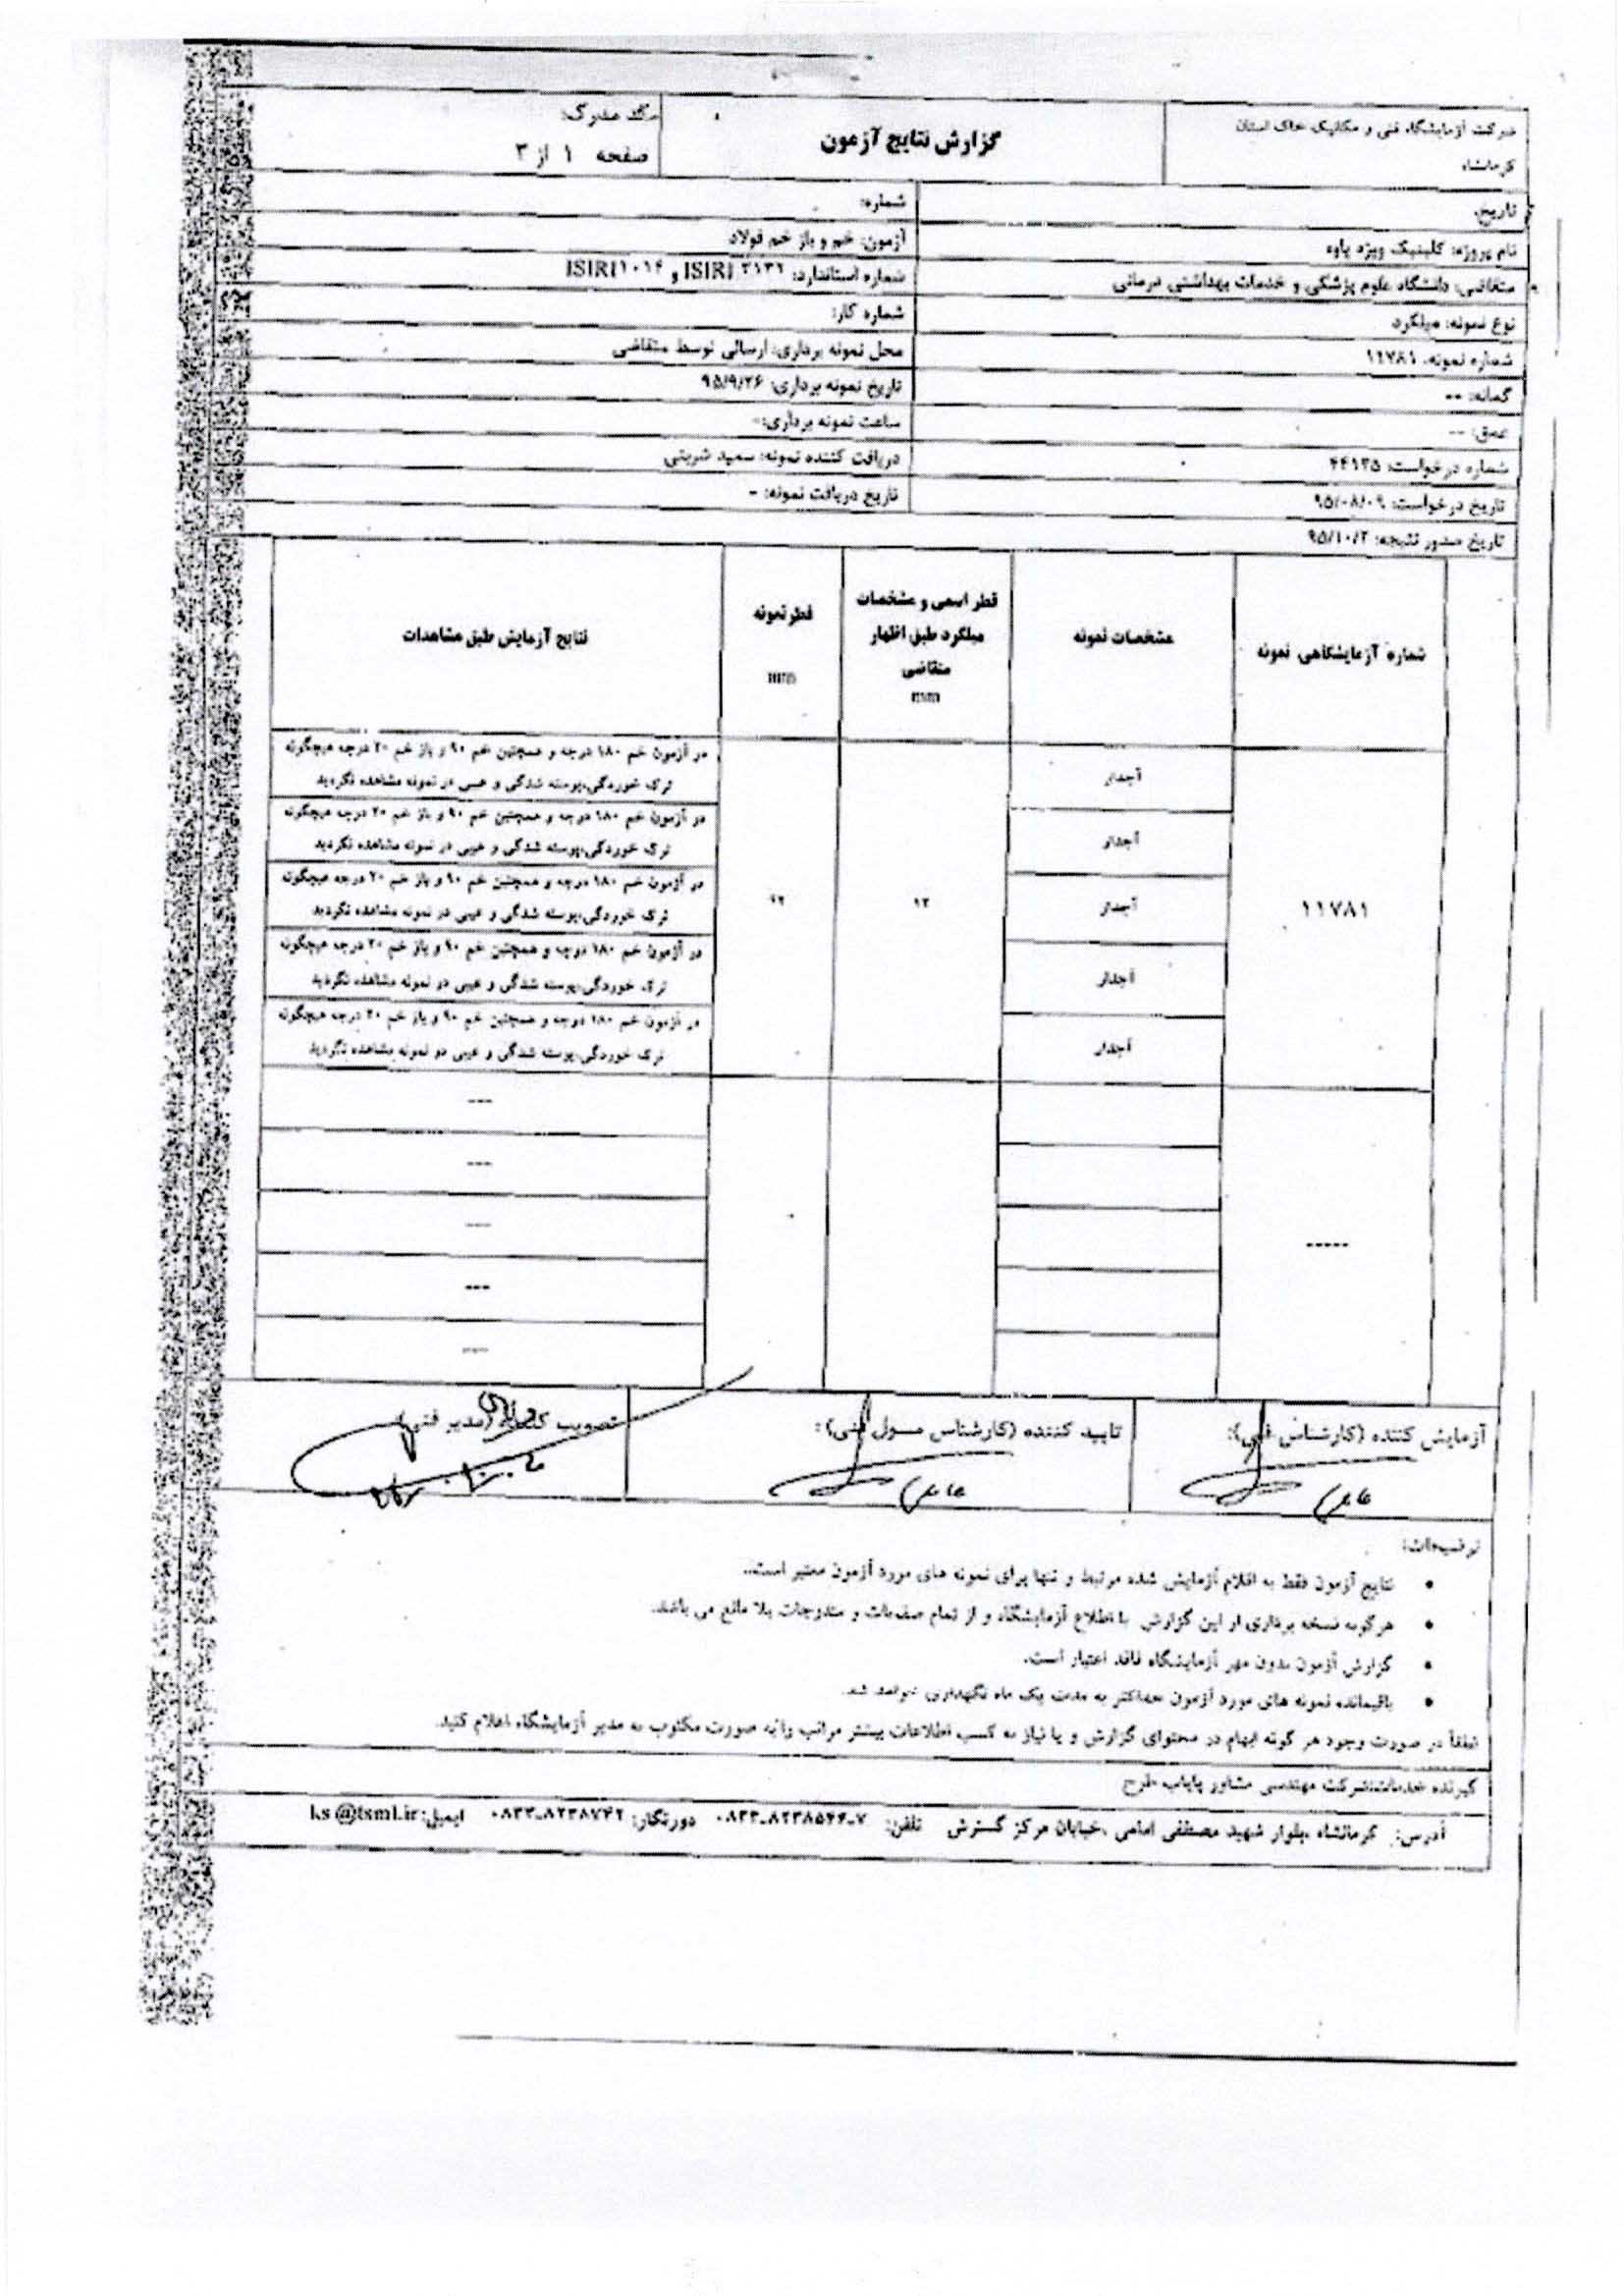 شرکت آزمایشگاه فنی و مکانیک خاک استان
کرمانشاه
گزارش نتایج آزمون
کد مدرک:
صفحه ۱ از ۳
تاریخ:
شماره:
نام پروژه: کلینیک ویژه پاوه
آزمون: خم و باز خم فولاد
متقاضی: دانشگاه علوم پزشکی و خدمات بهداشتی درمانی
شماره استاندارد: ISIRI ۳۱۳۲ و ISIRI۱۰۱۶
نوع نمونه: میلگرد
شماره کار:
شماره نمونه: ۱۱۷۸۱
محل نمونه برداری: ارسالی توسط متقاضی
گمانه: --
تاریخ نمونه برداری: ۹۵/۹/۲۶
عمق: --
ساعت نمونه برداری: -
شماره درخواست: ۴۴۱۳۵
دریافت کننده نمونه: سعید شریتی
تاریخ درخواست: ۹۵/۰۸/۰۹
تاریخ دریافت نمونه: -
تاریخ صدور نتیجه: ۹۵/۱۰/۲
شماره آزمایشگاهی نمونه
مشخصات نمونه
قطر اسمی و مشخصات
میلگرد طبق اظهار
متقاضی
mm
قطر نمونه
mm
نتایج آزمایش طبق مشاهدات
۱۱۷۸۱
۱۲
۱۲
آجدار
در آزمون خم ۱۸۰ درجه و همچنین خم ۹۰ و باز خم ۲۰ درجه هیچگونه
ترک خوردگی،پوسته شدگی و عیبی در نمونه مشاهده نگردید
آجدار
در آزمون خم ۱۸۰ درجه و همچنین خم ۹۰ و باز خم ۲۰ درجه هیچگونه
ترک خوردگی،پوسته شدگی و عیبی در نمونه مشاهده نگردید
آجدار
در آزمون خم ۱۸۰ درجه و همچنین خم ۹۰ و باز خم ۲۰ درجه هیچگونه
ترک خوردگی،پوسته شدگی و عیبی در نمونه مشاهده نگردید
آجدار
در آزمون خم ۱۸۰ درجه و همچنین خم ۹۰ و باز خم ۲۰ درجه هیچگونه
ترک خوردگی،پوسته شدگی و عیبی در نمونه مشاهده نگردید
آجدار
در آزمون خم ۱۸۰ درجه و همچنین خم ۹۰ و باز خم ۲۰ درجه هیچگونه
ترک خوردگی،پوسته شدگی و عیبی در نمونه مشاهده نگردید
-----
---
---
---
---
---
آزمایش کننده (کارشناس فنی):
تایید کننده (کارشناس مسول فنی):
تصویب کننده (مدیر فنی):
توضیحات:
• نتایج آزمون فقط به اقلام آزمایش شده مرتبط و تنها برای نمونه های مورد آزمون معتبر است..
• هرگونه نسخه برداری از این گزارش با اطلاع آزمایشگاه و از تمام صفحات و مندرجات بلا مانع می باشد.
• گزارش آزمون بدون مهر آزمایشگاه فاقد اعتبار است.
• باقیمانده نمونه های مورد آزمون حداکثر به مدت یک ماه نگهداری خواهد شد.
لطفاً در صورت وجود هر گونه ابهام در محتوای گزارش و یا نیاز به کسب اطلاعات بیشتر مراتب را به صورت مکتوب به مدیر آزمایشگاه اعلام کنید.
گیرنده خدمات:شرکت مهندسی مشاور پایاب طرح
آدرس: کرمانشاه ،بلوار شهید مصطفی امامی ،خیابان مرکز گسترش تلفن: ۷-۰۸۳۳-۸۲۳۸۵۴۶ دورنگار: ۰۸۳۳-۸۲۳۸۷۴۲ ایمیل: ks@tsml.ir